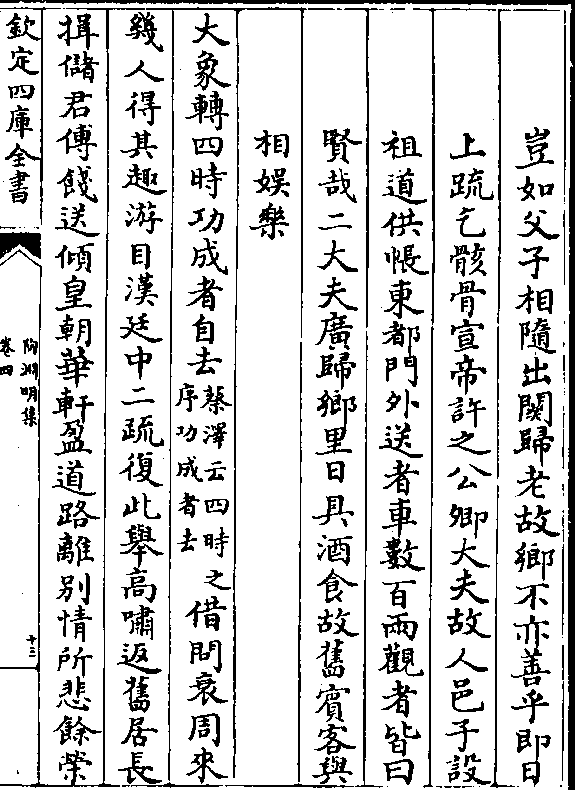 豈如父子相隨出關歸老故鄉不亦善乎即日
上疏乞骸骨宣帝許之公卿大夫故人邑子設
祖道供帳東都門外送者車數百兩觀者皆曰
賢哉二大夫廣歸鄉里日具酒食故舊賓客與
相娛樂
大象轉四時功成者自去蔡澤云四時之序功成者去借問衰周來
幾人得其趣游目漢廷中二疏復此舉高嘯返舊居長
揖儲君傅餞送傾皇朝華軒盈道路離別情所悲餘榮
欽定四庫全書
陶淵明集
卷四
十三